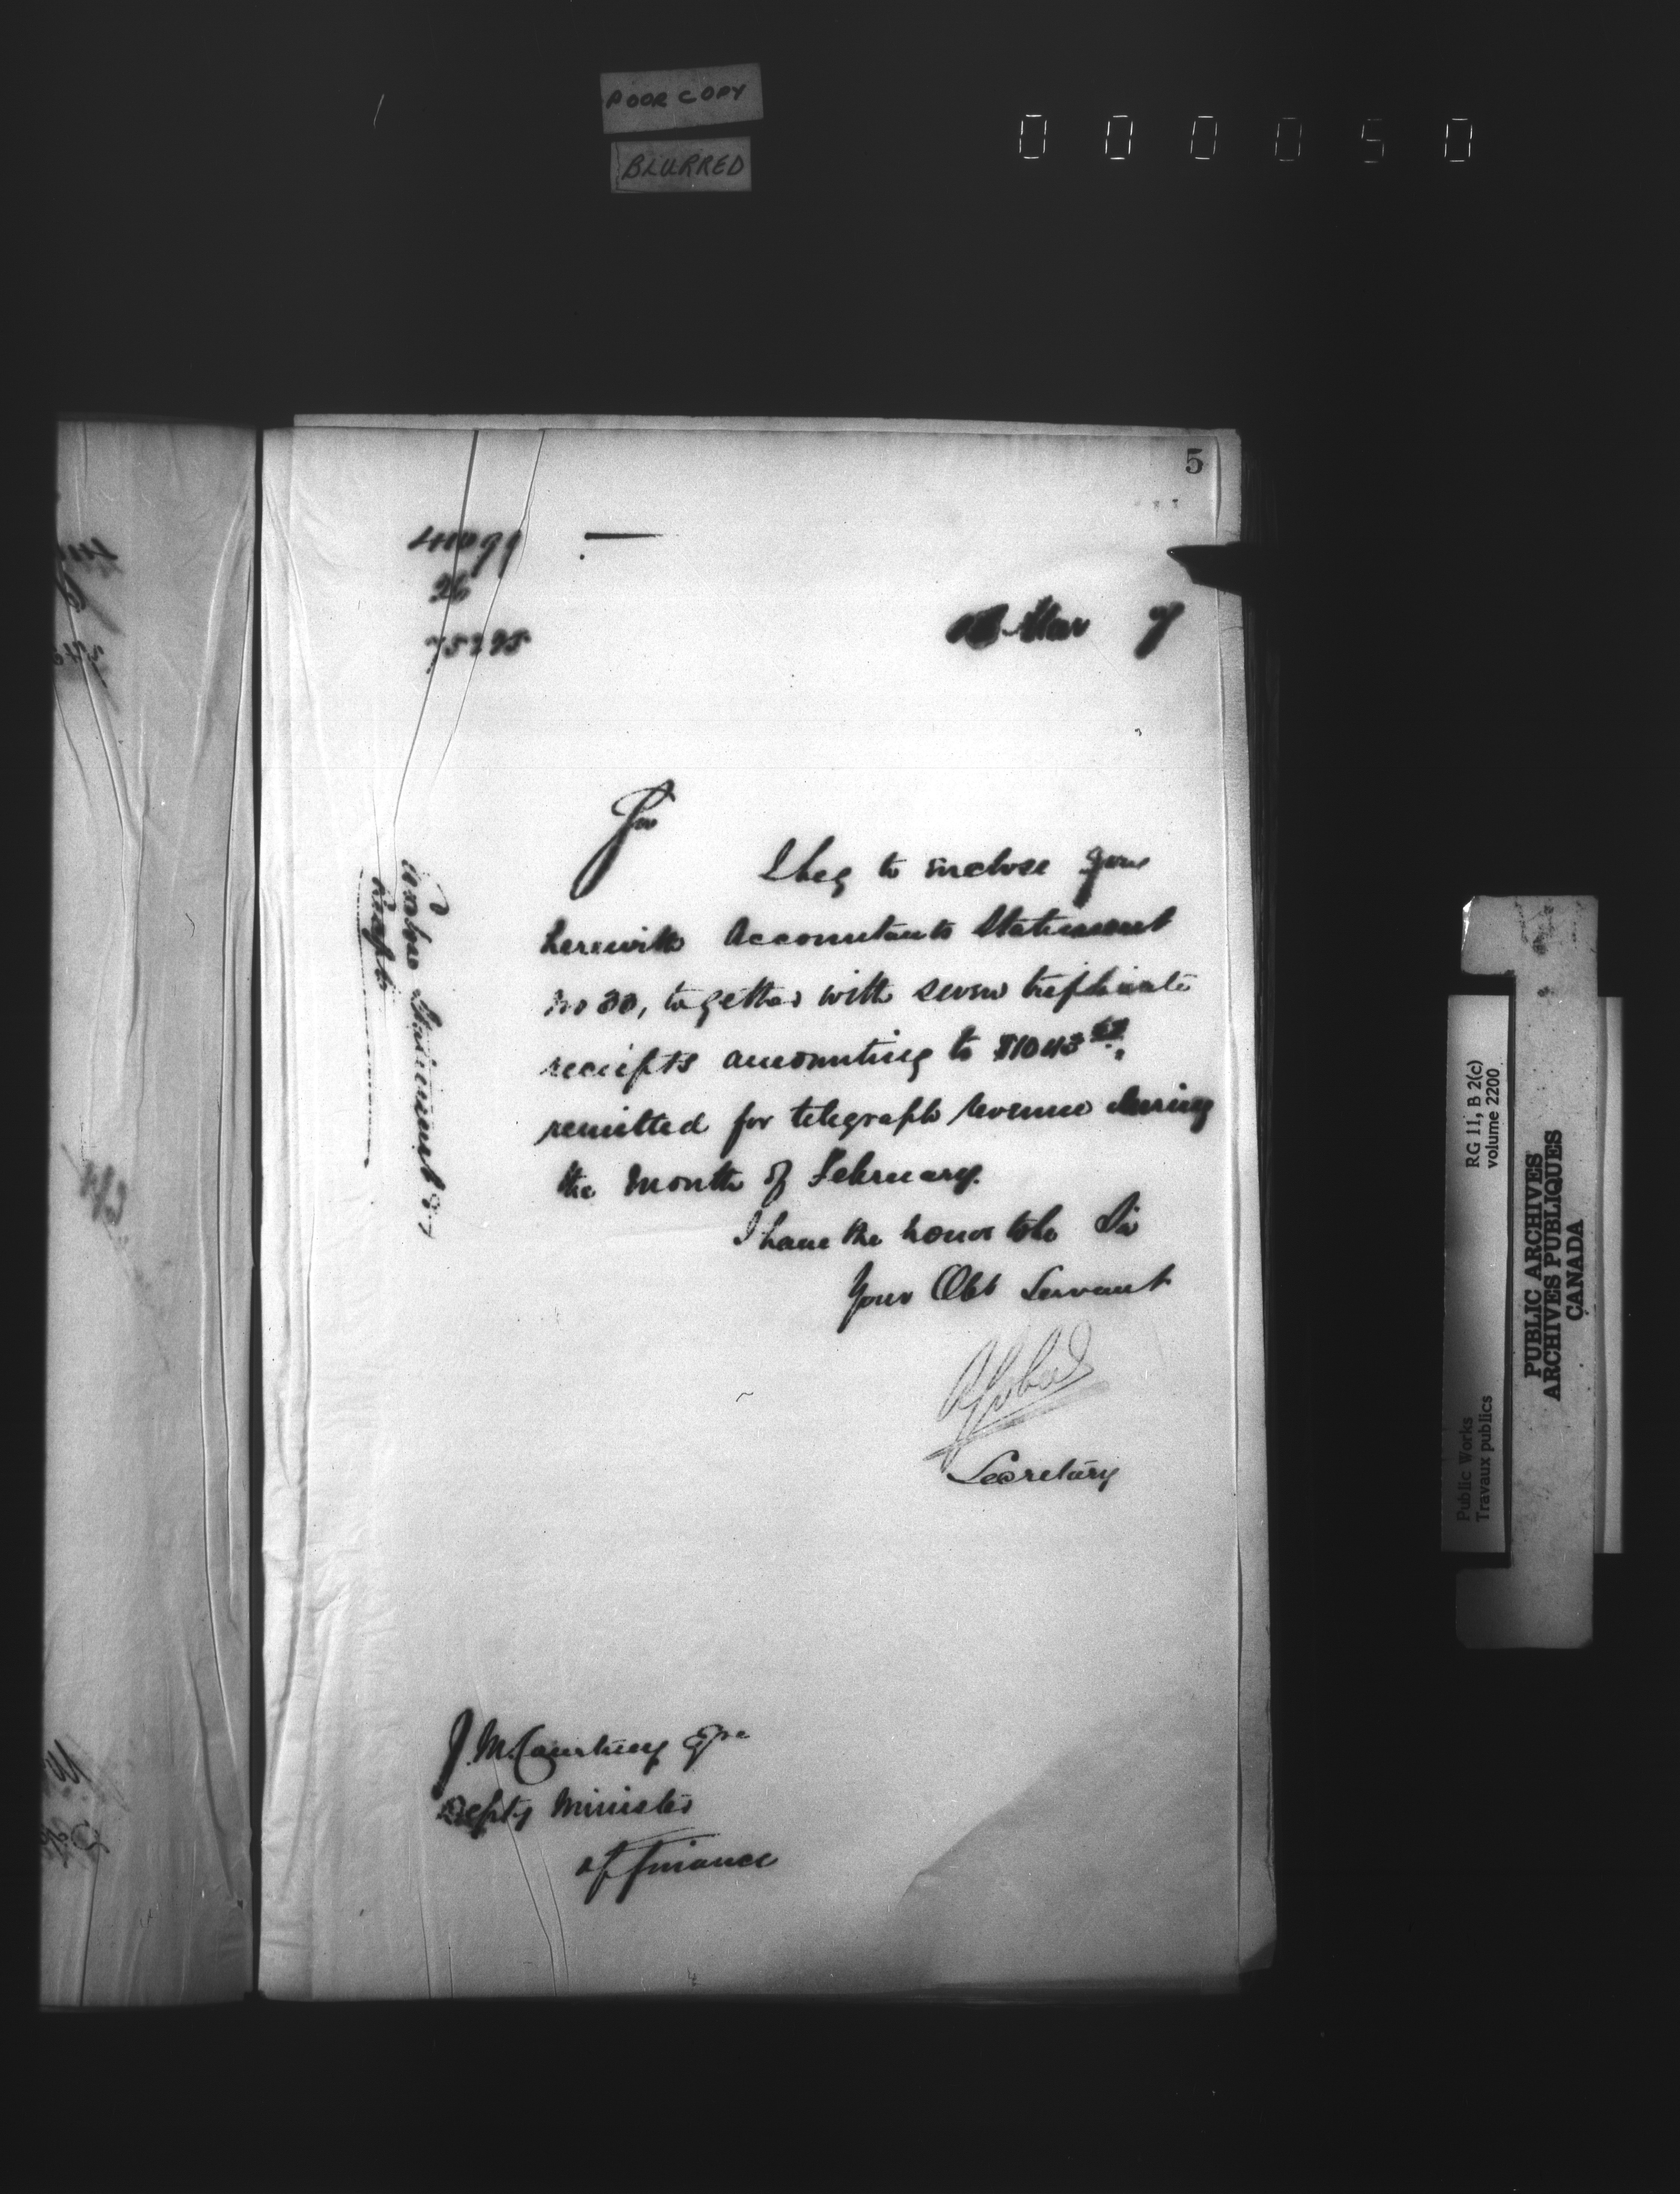 POOR COPY
BLURRED
0 0 0 0 5 0
5
26
Mar 7
Sir
I beg to inclose you
herewith Accountants Statement
No 33, together with seven triplicate
receipts amounting to
remitted for telegraph revenue during
the Month of February.
I have the honor to be Sir
Your Obt Servant
Secretary
J. M. Courtney Esqre
Depty Minister
of Finance
Statement &
Receipts
RG 11, B 2(c)
volume 2200
Public Works
Travaux publics
PUBLIC ARCHIVES
ARCHIVES PUBLIQUES
CANADA